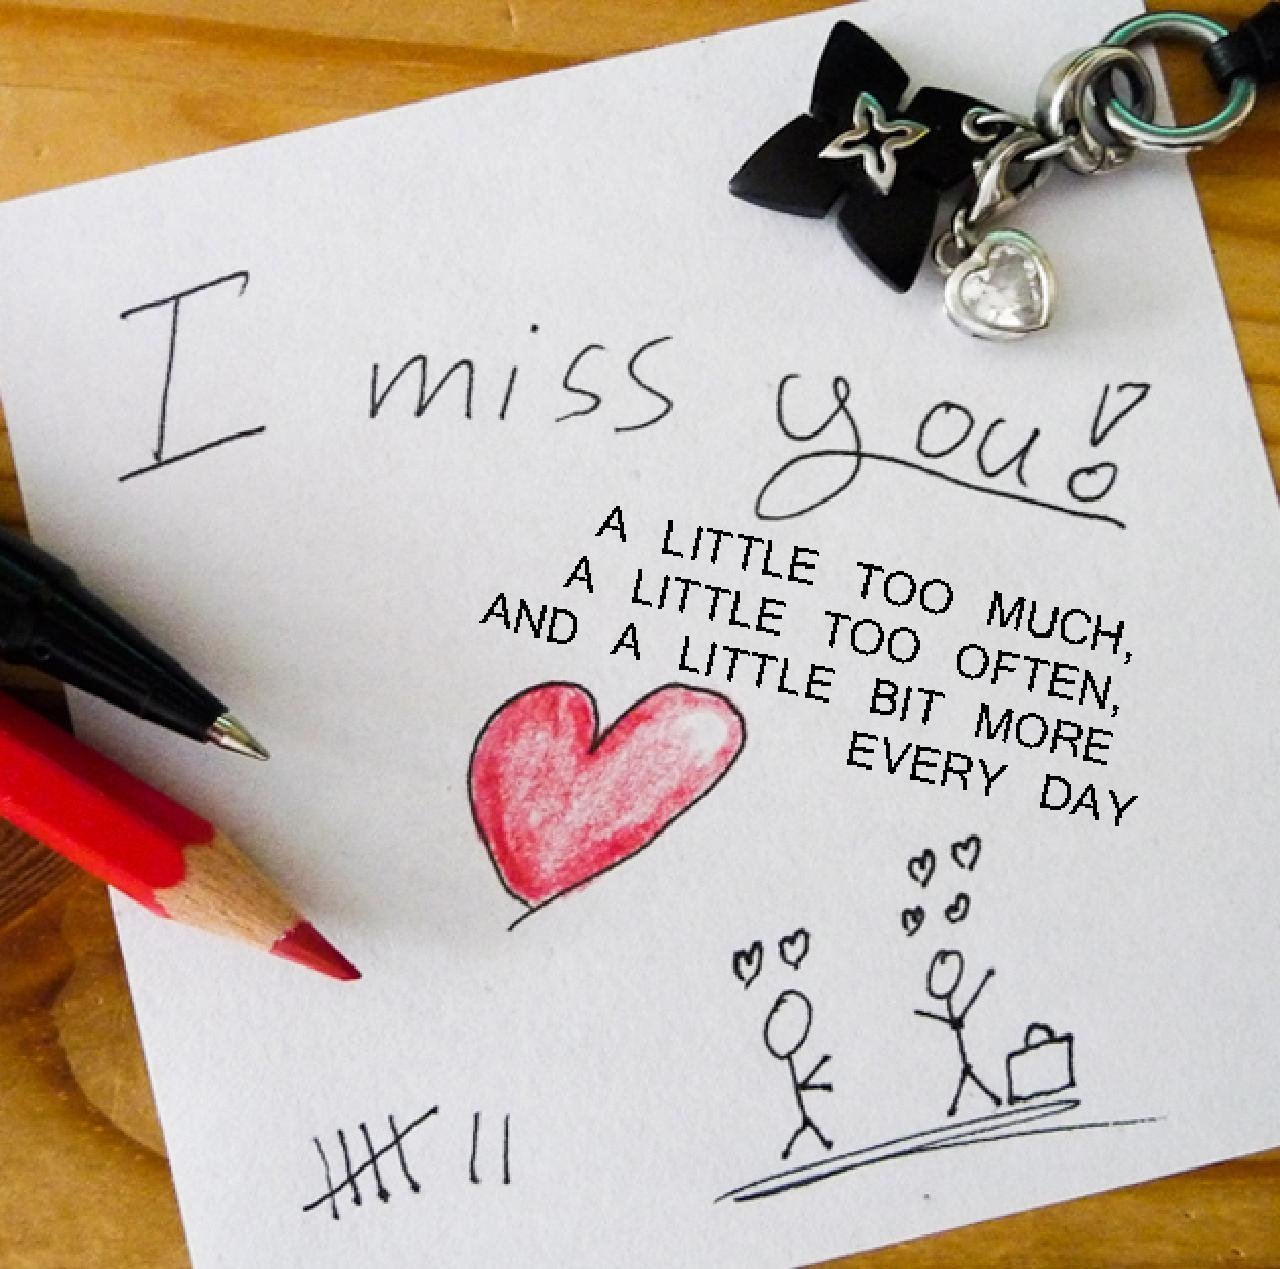 I miss you!
A LITTLE TOO MUCH,
A LITTLE TOO OFTEN,
AND A LITTLE BIT MORE
EVERY DAY